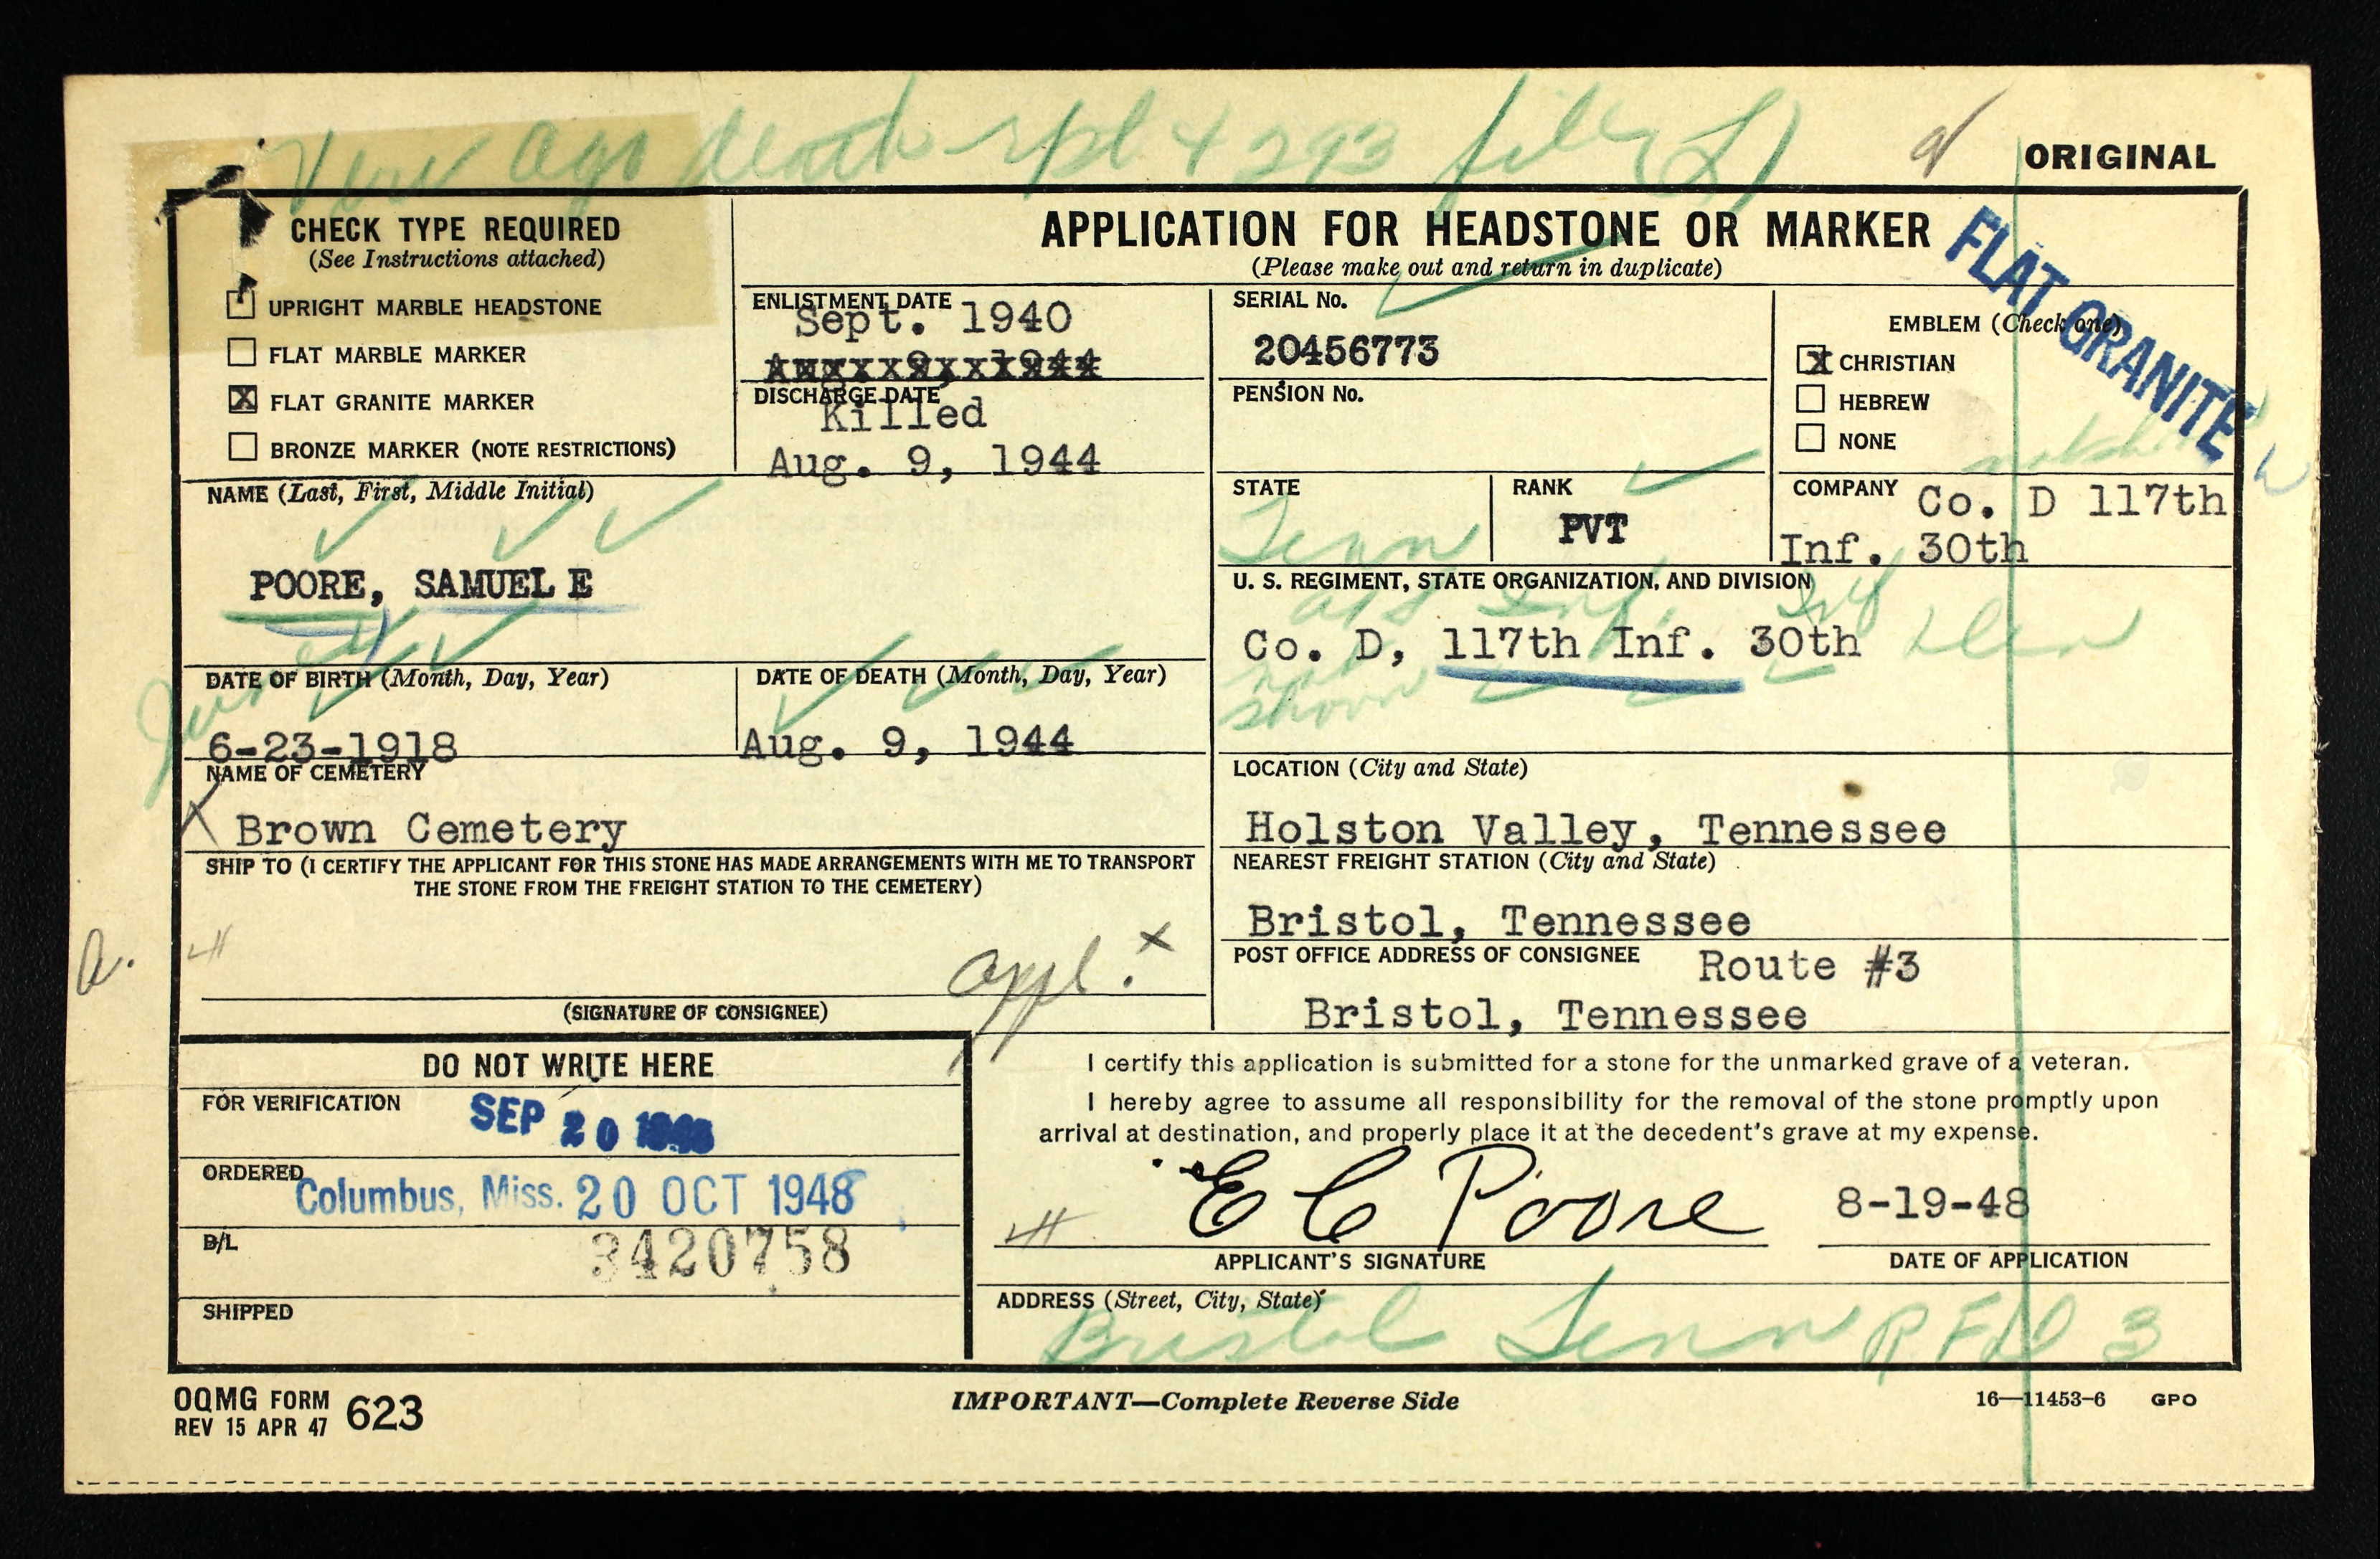 Ver ago death rpt 4293 file
ORIGINAL
CHECK TYPE REQUIRED
(See Instructions attached)
UPRIGHT MARBLE HEADSTONE
FLAT MARBLE MARKER
X FLAT GRANITE MARKER
BRONZE MARKER (NOTE RESTRICTIONS)
APPLICATION FOR HEADSTONE OR MARKER
(Please make out and return in duplicate)
FLAT GRANITE
ENLISTMENT DATE
Sept. 1940
DISCHARGE DATE
Killed
Aug. 9, 1944
SERIAL No.
20456773
PENSION No.
EMBLEM (Check one)
X CHRISTIAN
HEBREW
NONE
NAME (Last, First, Middle Initial)
POORE, SAMUEL E
STATE
Tenn
RANK
PVT
COMPANY Co. D 117th
Inf. 30th
U. S. REGIMENT, STATE ORGANIZATION, AND DIVISION
Inf. Inf
Co. D, 117th Inf. 30th Div
not
shown
DATE OF BIRTH (Month, Day, Year)
6-23-1918
DATE OF DEATH (Month, Day, Year)
Aug. 9, 1944
NAME OF CEMETERY
X Brown Cemetery
LOCATION (City and State)
Holston Valley, Tennessee
SHIP TO (I CERTIFY THE APPLICANT FOR THIS STONE HAS MADE ARRANGEMENTS WITH ME TO TRANSPORT
THE STONE FROM THE FREIGHT STATION TO THE CEMETERY)
appl. x
(SIGNATURE OF CONSIGNEE)
NEAREST FREIGHT STATION (City and State)
Bristol, Tennessee
POST OFFICE ADDRESS OF CONSIGNEE Route #3
Bristol, Tennessee
DO NOT WRITE HERE
FOR VERIFICATION
SEP 20
ORDERED
Columbus, Miss. 20 OCT 1948
B/L
3420758
SHIPPED
I certify this application is submitted for a stone for the unmarked grave of a veteran.
I hereby agree to assume all responsibility for the removal of the stone promptly upon
arrival at destination, and properly place it at the decedent's grave at my expense.
E C Poore
8-19-48
APPLICANT'S SIGNATURE
DATE OF APPLICATION
ADDRESS (Street, City, State)
Bristol Tenn RFD 3
OQMG FORM 623
REV 15 APR 47
IMPORTANT—Complete Reverse Side
16—11453-6 GPO